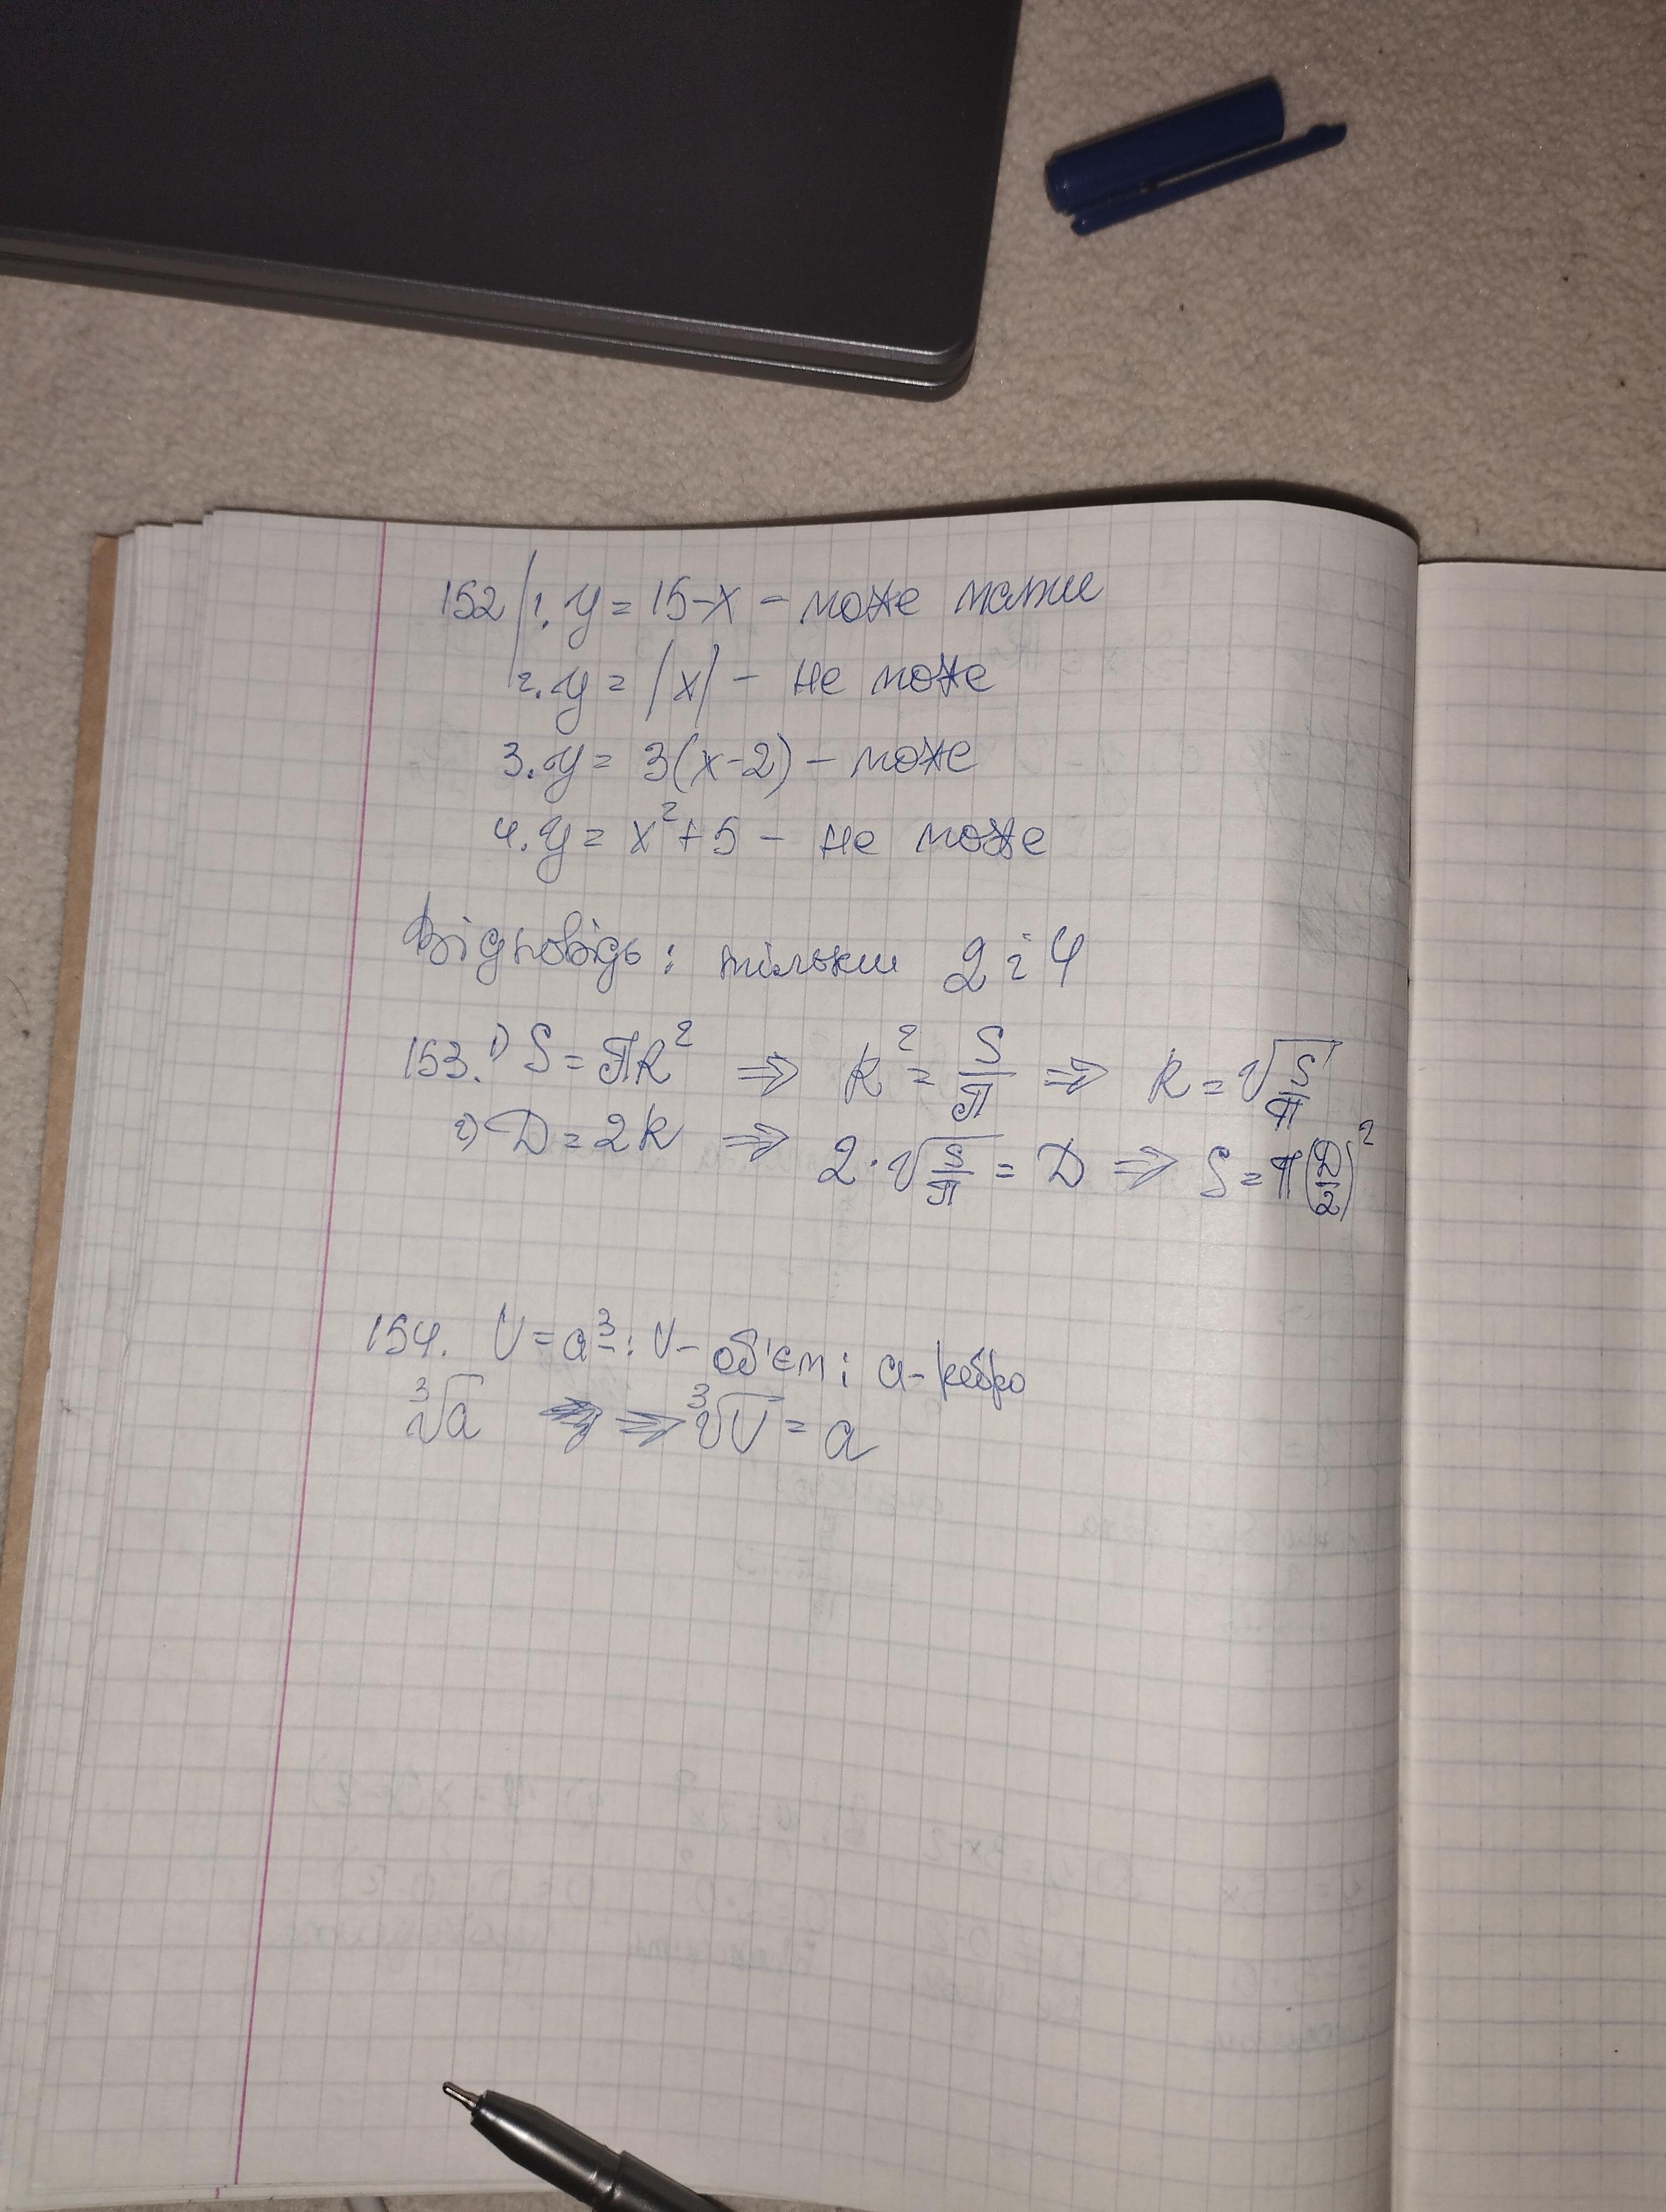 152 1. y = 15-x - може мати
2. y = |x| - не може
3. y = 3(x-2) - може
4. y = x²+5 - не може
Відповідь: тільки 2 і 4
153. 1) S = πR² ⇒ R² = S/π ⇒ R = √(S/π)
2) D = 2R ⇒ 2·√(S/π) = D ⇒ S = π(D/2)²
154. V = a³ ; V - об'єм ; a - ребро
∛a ⇒ ∛V = a